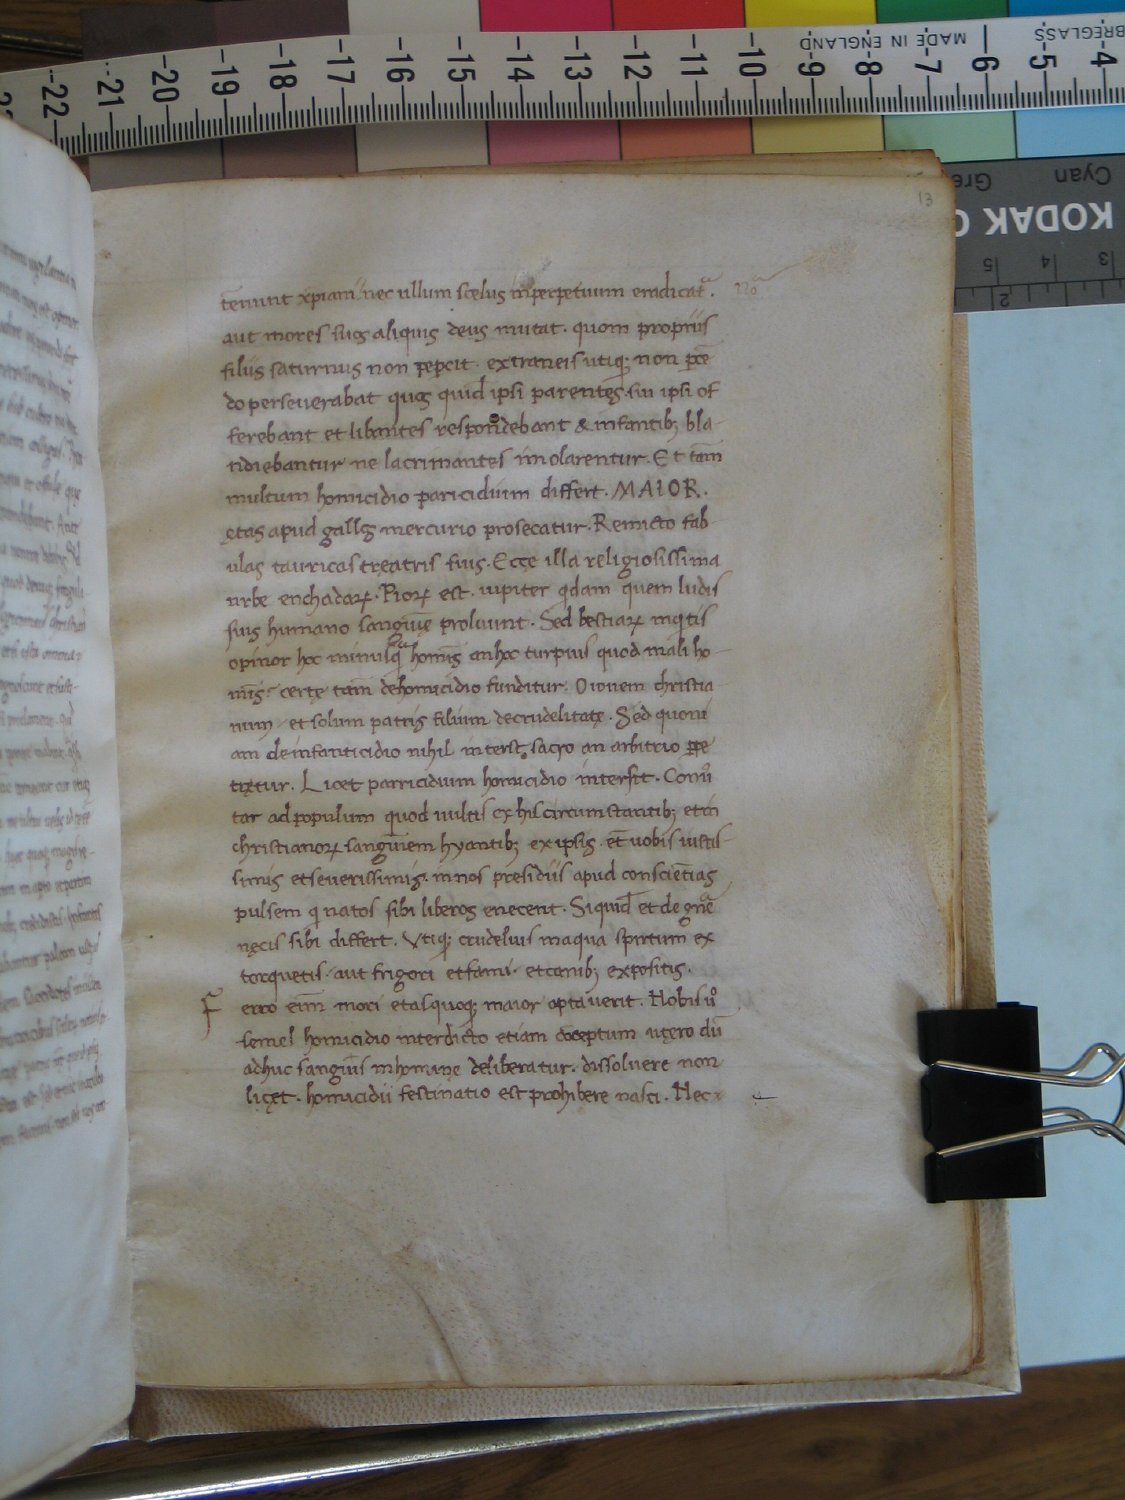 -22 -21 -20 -19 -18 -17 -16 -15 -14 -13 -12 -11 -10 -9 -8 -7 -6 -5 -4
MADE IN ENGLAND
BREGLASS
Cyan
KODAK
13
tenunt xpiani nec ullum scelus inperpetuum eradicat̄.
aut mores suos aliquis deus mutat. quom propriis
filiis saturnus non pepcit. extraneis utiq; non pcē
do perseuerabat quos quid ipsi parentes sui ipsi of
ferebant et libantes respondebant & infantib; bla-
tidiebantur ne lacrimantes imolarentur. Et tam̄
multum homicidio paricidium differt. MAIOR.
ętas apud gallos mercurio prosecatur. Remicto fab-
ulas tauricas treatris suis. Ecce illa religiosissima
urbe enchadarꝝ. Piorꝝ est. iupiter qdam quem ludis
suis humano sanguine proluunt. Sed bestiarꝝ inqtis
opinor hoc minusq̄ hominis an hoc turpius quod mali ho-
minis. certe tam̄ de homicidio funditur. O iouem christia
num et solum patris filium de crudelitate. Sed quoni
am de infanticidio nihil interest sacro an arbitrio ppe
tretur. Licet parricidium homicidio intersit. Conu
tar ad populum quod uultis ex his circumstantib; et in
christianorꝝ sanguinem hyantib; ex ipsis. et uobis iustis-
simis et seuerissimis. in nos presidiis apud conscientias
pulsem q natos sibi liberos enecent. Siquid et de gn̄e
necis sibi differt. Utiq; crudelius inaqua spiritum ex
torquetis. aut frigori et fami. et canib; expositis.
F erro eim̄ mori etas quoq; maior optauerit. Nobis u͛o
semel homicidio interdicto etiam coceptum utero dū
adhuc sanguis in homine deliberatur. dissoluere non
licet. homicidii festinatio est prohibere nasci. Nec